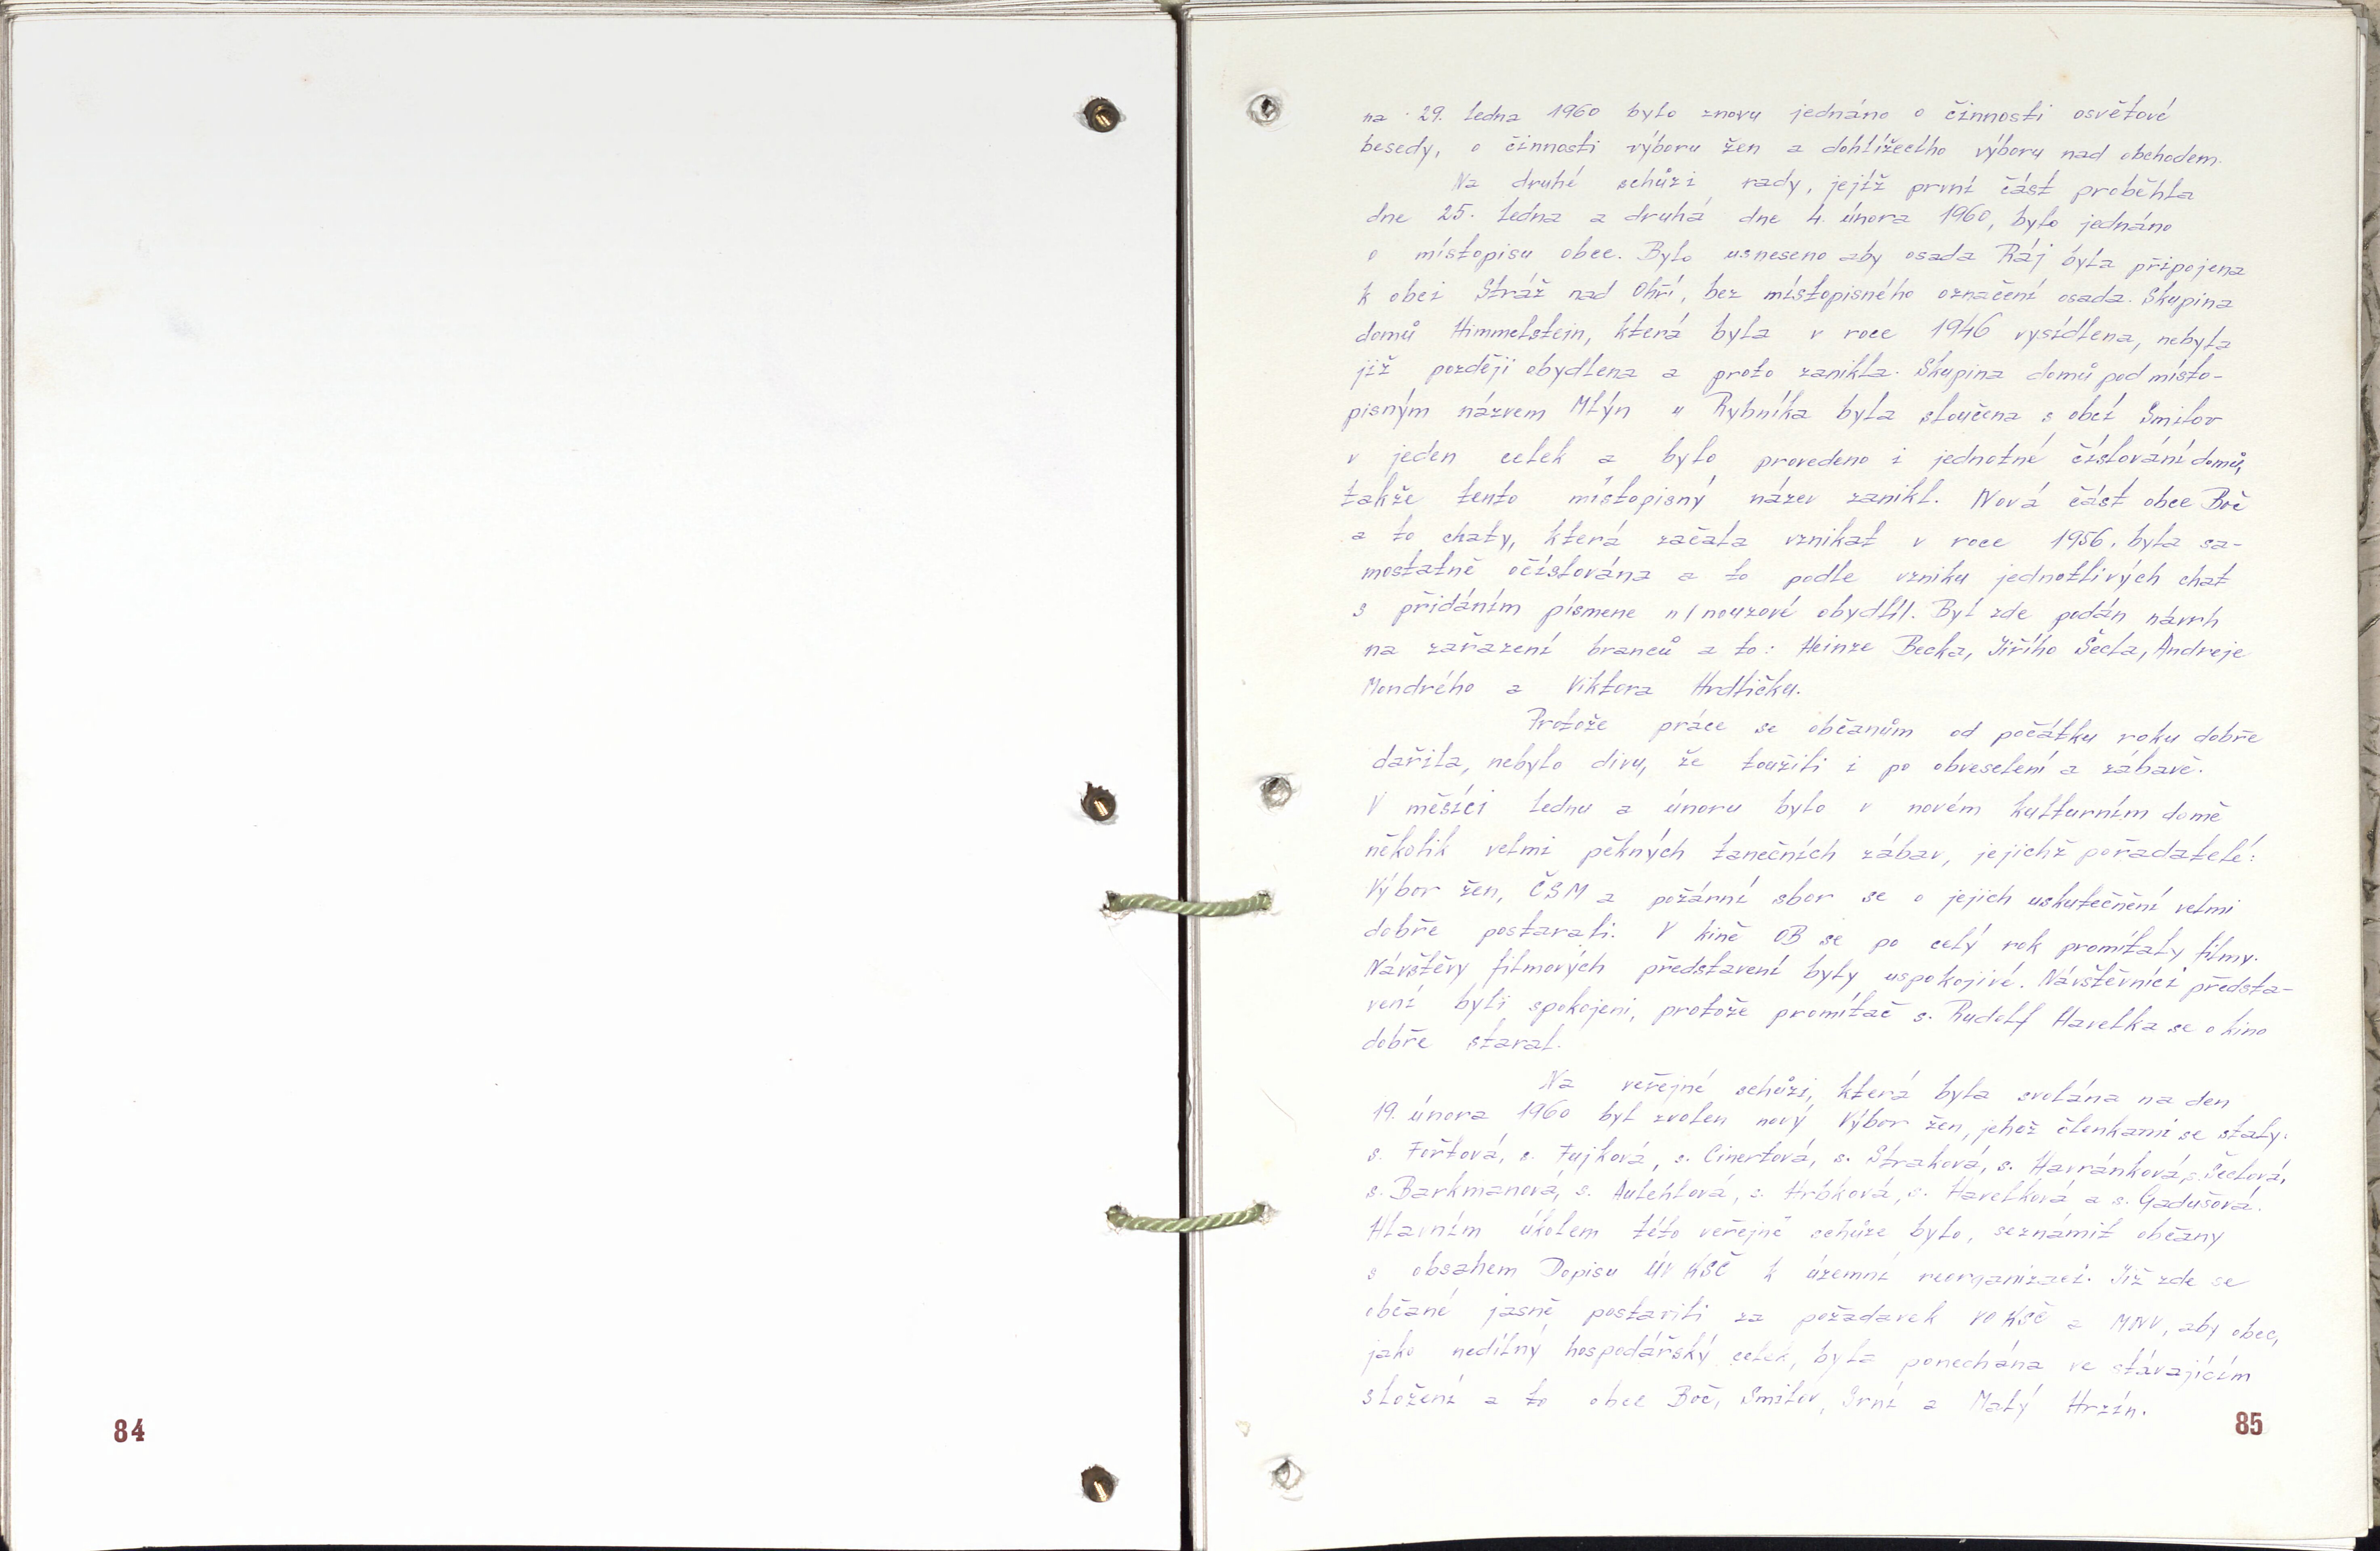 na 29. ledna 1960 bylo znovu jednáno o činnosti osvětové
besedy, o činnosti výboru žen a dohlížecího výboru nad obchodem.
Na druhé schůzi rady, jejíž první část proběhla
dne 25. ledna a druhá dne 4. února 1960, bylo jednáno
o místopisu obce. Bylo usneseno aby osada Ráj byla připojena
k obci Stráž nad Ohří, bez místopisného označení osada. Skupina
domů Himmelstein, která byla v roce 1946 vysídlena, nebyla
již později obydlena a proto zanikla. Skupina domů pod místo-
pisným názvem Mlýn u Rybníka byla sloučena s obcí Smilov
v jeden celek a bylo provedeno i jednotné číslování domů,
takže tento místopisný název zanikl. Nová část obce Boč
a to chaty, která začala vznikat v roce 1956, byla sa-
mostatně očíslována a to podle vzniku jednotlivých chat
s přidáním písmene n/nouzové obydlí/. Byl zde podán návrh
na zařazení branců a to: Heinze Becka, Jiřího Šecla, Andreje
Mondrého a Viktora Hrdličku.
Protože práce se občanům od počátku roku dobře
dařila, nebylo divu, že toužili i po obveselení a zábavě.
V měsíci lednu a únoru bylo v novém kulturním domě
několik velmi pěkných tanečních zábav, jejichž pořadatelé:
Výbor žen, ČSM a požární sbor se o jejich uskutečnění velmi
dobře postarali. V kině OB se po celý rok promítaly filmy.
Návštěvy filmových představení byly uspokojivé. Návštěvníci předsta-
vení byli spokojeni, protože promítač s. Rudolf Havelka se o kino
dobře staral.
Na veřejné schůzi, která byla svolána na den
19. února 1960 byl zvolen nový Výbor žen, jehož členkami se staly:
s. Fořtová, s. Fujková, s. Cinertová, s. Straková, s. Havránková, s. Šeclová,
s. Barkmanová, s. Aulehlová, s. Hrbková, s. Havelková a s. Gadušová.
Hlavním úkolem této veřejné schůze bylo, seznámit občany
s obsahem Dopisu ÚV KSČ k územní reorganizaci. Již zde se
občané jasně postavili za požadavek VO KSČ a MNV, aby obec,
jako nedílný hospodářský celek, byla ponechána ve stávajícím
složení a to obce Boč, Smilov, Srní a Malý Hrzín.
84
85